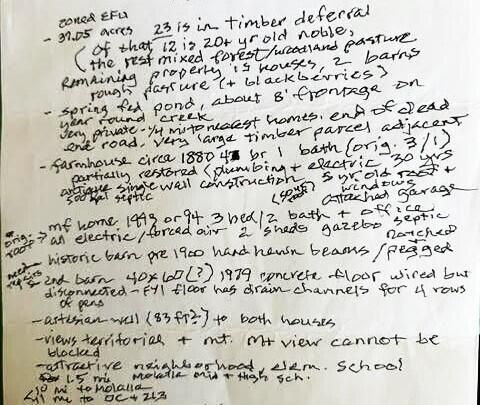 zoned EFU
- 37.05 acres 23 is in timber deferral
(of that 12 is 20+ yr old noble,
the rest mixed forest/woodland pasture
Remaining property is houses, 2 barns
rough pasture (+ blackberries)
- spring fed pond, about 8' frontage on
year round creek
very private - 1/4 mi to nearest homes, end of dead
end road, very large timber parcel adjacent
- farmhouse circa 1880 4 br 1 bath (orig. 3/1)
partially restored (plumbing + electric 30 yrs
antique single wall construction 5 yr old roof +
500 gal septic (some windows
attached garage
- mf home 1993 or 94 3 bed/2 bath + office
orig. roof all electric/forced air 2 sheds gazebo septic
- historic barn pre 1900 hand hewn beams/notched pegged
need repairs
- 2nd barn 40x60(?) 1979 concrete floor wired but
disconnected - FYI floor has drain channels for 4 rows
of pens
- artesian well (83 ft?) to both houses
- views territorial + mt. Mt view cannot be
blocked
- attractive neighborhood, elem. school
1.5 mi Molalla mid + High Sch.
10 mi to Molalla
mi to OC + 213